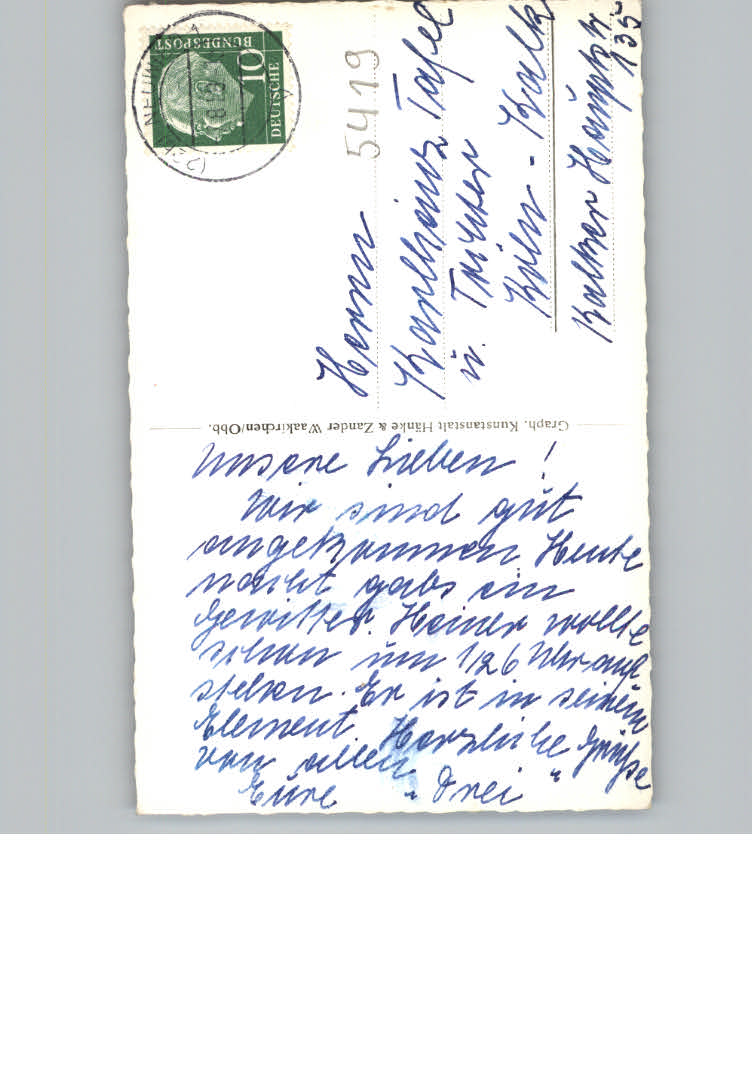 Unsere Lieben!
Wir sind gut
angekommen Heute
nacht gabs ein
Gewitter. Heiner wollte
schon um 1/26 Uhr auf
stehen. Er ist in seinem
Element. Herzliche Grüße
von allen
Eure "Drei"
Graph. Kunstanstalt Hänke & Zander Waakirchen/Obb.
Herrn
Karlheinz Tafel
u. Tochter
Köln - Kalk
Kalker Hauptstr
135
5419
DEUTSCHE
BUNDESPOST
10